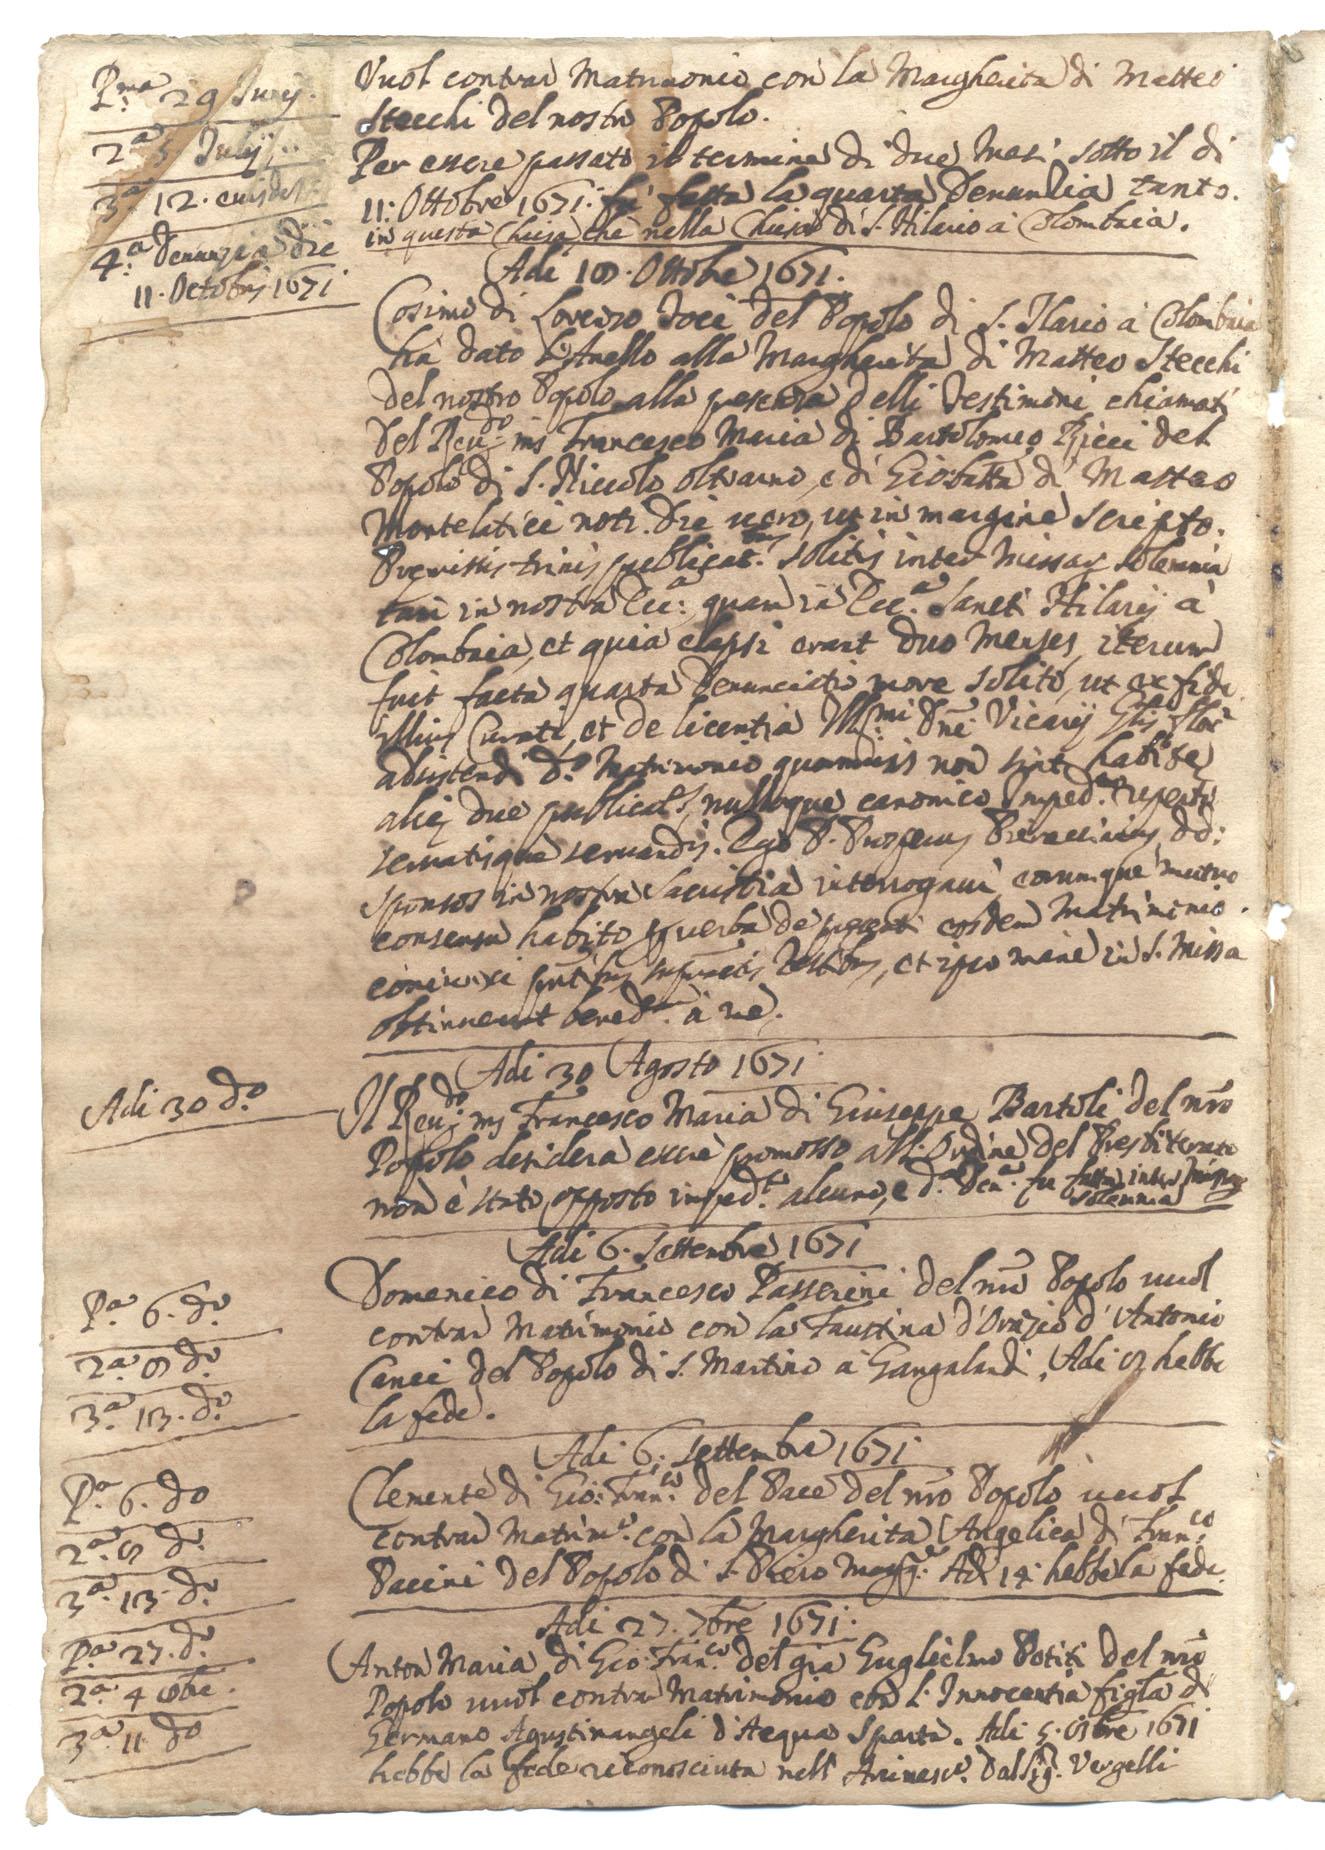 P.ma 29 Junij.
2.a 5 Julij
3.a 12. eiusdem
4.a Denunzia Die
11. Octobris 1671
Vuol contrar Matrimonio con la Margherita di Matteo
Stecchi del nostro Popolo.
Per essere passato il termine di due Mesi sotto il di
11: Ottobre 1671: fu fatta la quarta Denunzia tanto
in questa Chiesa che nella Chiesa di S. Hilario à Colombaia.
Adi 18. Ottobre 1671.
Cosimo di Lorenzo Toci del Popolo di S. Ilario à Colombaia
hà dato l'Anello alla Margherita di Matteo Stecchi
del nostro Popolo alla presenza delli Testimoni chiamati
del Reu:do ms Francesco Maria di Bartolomeo Ricci del
Popolo di S. Niccolo oltrarno, e di Gio:batta di Matteo
Montelatici noti. Die uero, ut in margine scripto.
Premissis trinis publicat.nibus solitis inter Missarum solemnia
tam in nostra Ecc:a quam in Ecc.a Sancti Hilarij à
Colombaia, et quia elapsi erant duo Menses, iterum
fuit facta quarta Denunciatio more solito, ut ex fide
illius Curati, et de licentia Ill:mi Dni Vicarij
absistendi d.o Matrimonio quamuis non sint habite
alie due publicat.s, nulloque canonico Imped.to reperto
seruatisque seruandis. Ego P. Prosperus dd:
sponsos in nostra Sacristia interrogaui, eorumque mutuo
consensu habito p uerba de presenti eosdem Matrimonio
coniunxi pntibus supractis Testibus, et ipso mane in S. Missa
obtinuerunt bened.m à me.
Adi 30 Agosto 1671
Adi 30 d.o
Il Reu:do ms Francesco Maria di Giuseppe Bartoli del nro
Popolo desidera essere promosso all'Ordine del Presbiterato
non è stato opposto imped.to alcuno, e d.a den.a fu fatta inter Missarum
solemnia
Adi 6. Settembre 1671
P.a 6. d.o
2.a 8 d.o
3.a 13. d.o
Domenico di Francesco Passerini del nro Popolo uuol
contrar Matrimonio con la Faustina d'Orazio d'Antonio
Canci del Popolo di S. Martino à Gangalandi, Adi 9 hebbe
la fede.
Adi 6. Settembre 1671
P.a 6. do
2.a 8 d.o
3.a 13. d.o
Clemente di Gio: Fran:co del Pace del nro Popolo uuol
contrar Matrim.o con la Margherita Angelica di Fran:co
Pacini del Popolo di S. Piero Magg.e Adi 14. hebbe la fede.
Adi 27. 7bre 1671.
P.a 27. d.o
2.a 4 8bre.
3.a 11 do
Anton Maria di Gio: Fran.co del qia Guglielmo Potiti del nro
Popolo uuol contrar Matrimonio con l'Innocentia figla di
Germano Agustinangeli d'Acqua Sparta. Adi 5. 8bre 1671
hebbe la fede riconosciuta nell' Arciuesc.o dal Sig. Vergelli